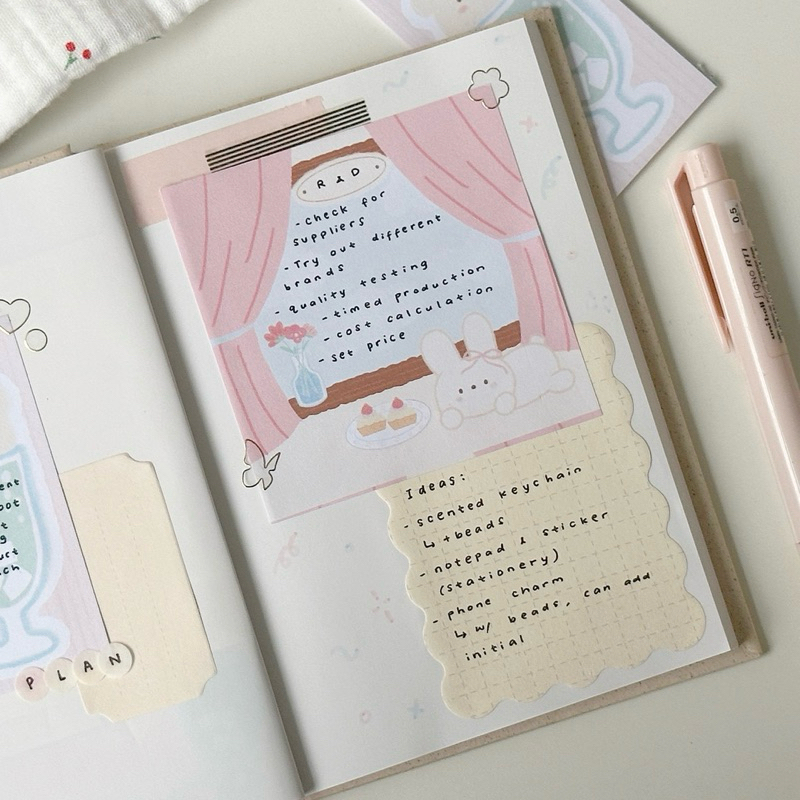 ent
oot
t
g
urt
ch
PLAN
R&D
- Check for
suppliers
- Try out different
brands
- quality testing
- timed production
- cost calculation
- set price
Ideas:
- scented keychain
↳ + beads
- notepad & sticker
(stationery)
- phone charm
↳ w/ beads, can add
initial
0.5